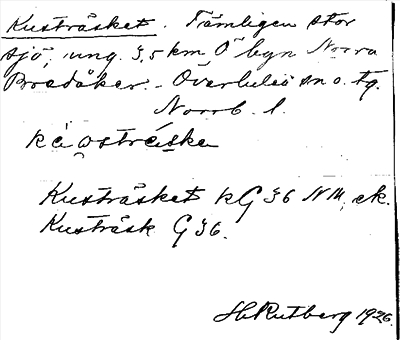 Kusträsket. Tämligen stor
sjö, ung. 3,5 km Ö byn Norra
Bredåker. - Överluleå sn o. tg.
Norrb. l.
Kusträsket kG 36 NW, ek.
Kusträsk G 36.
H. Rutberg 1926.